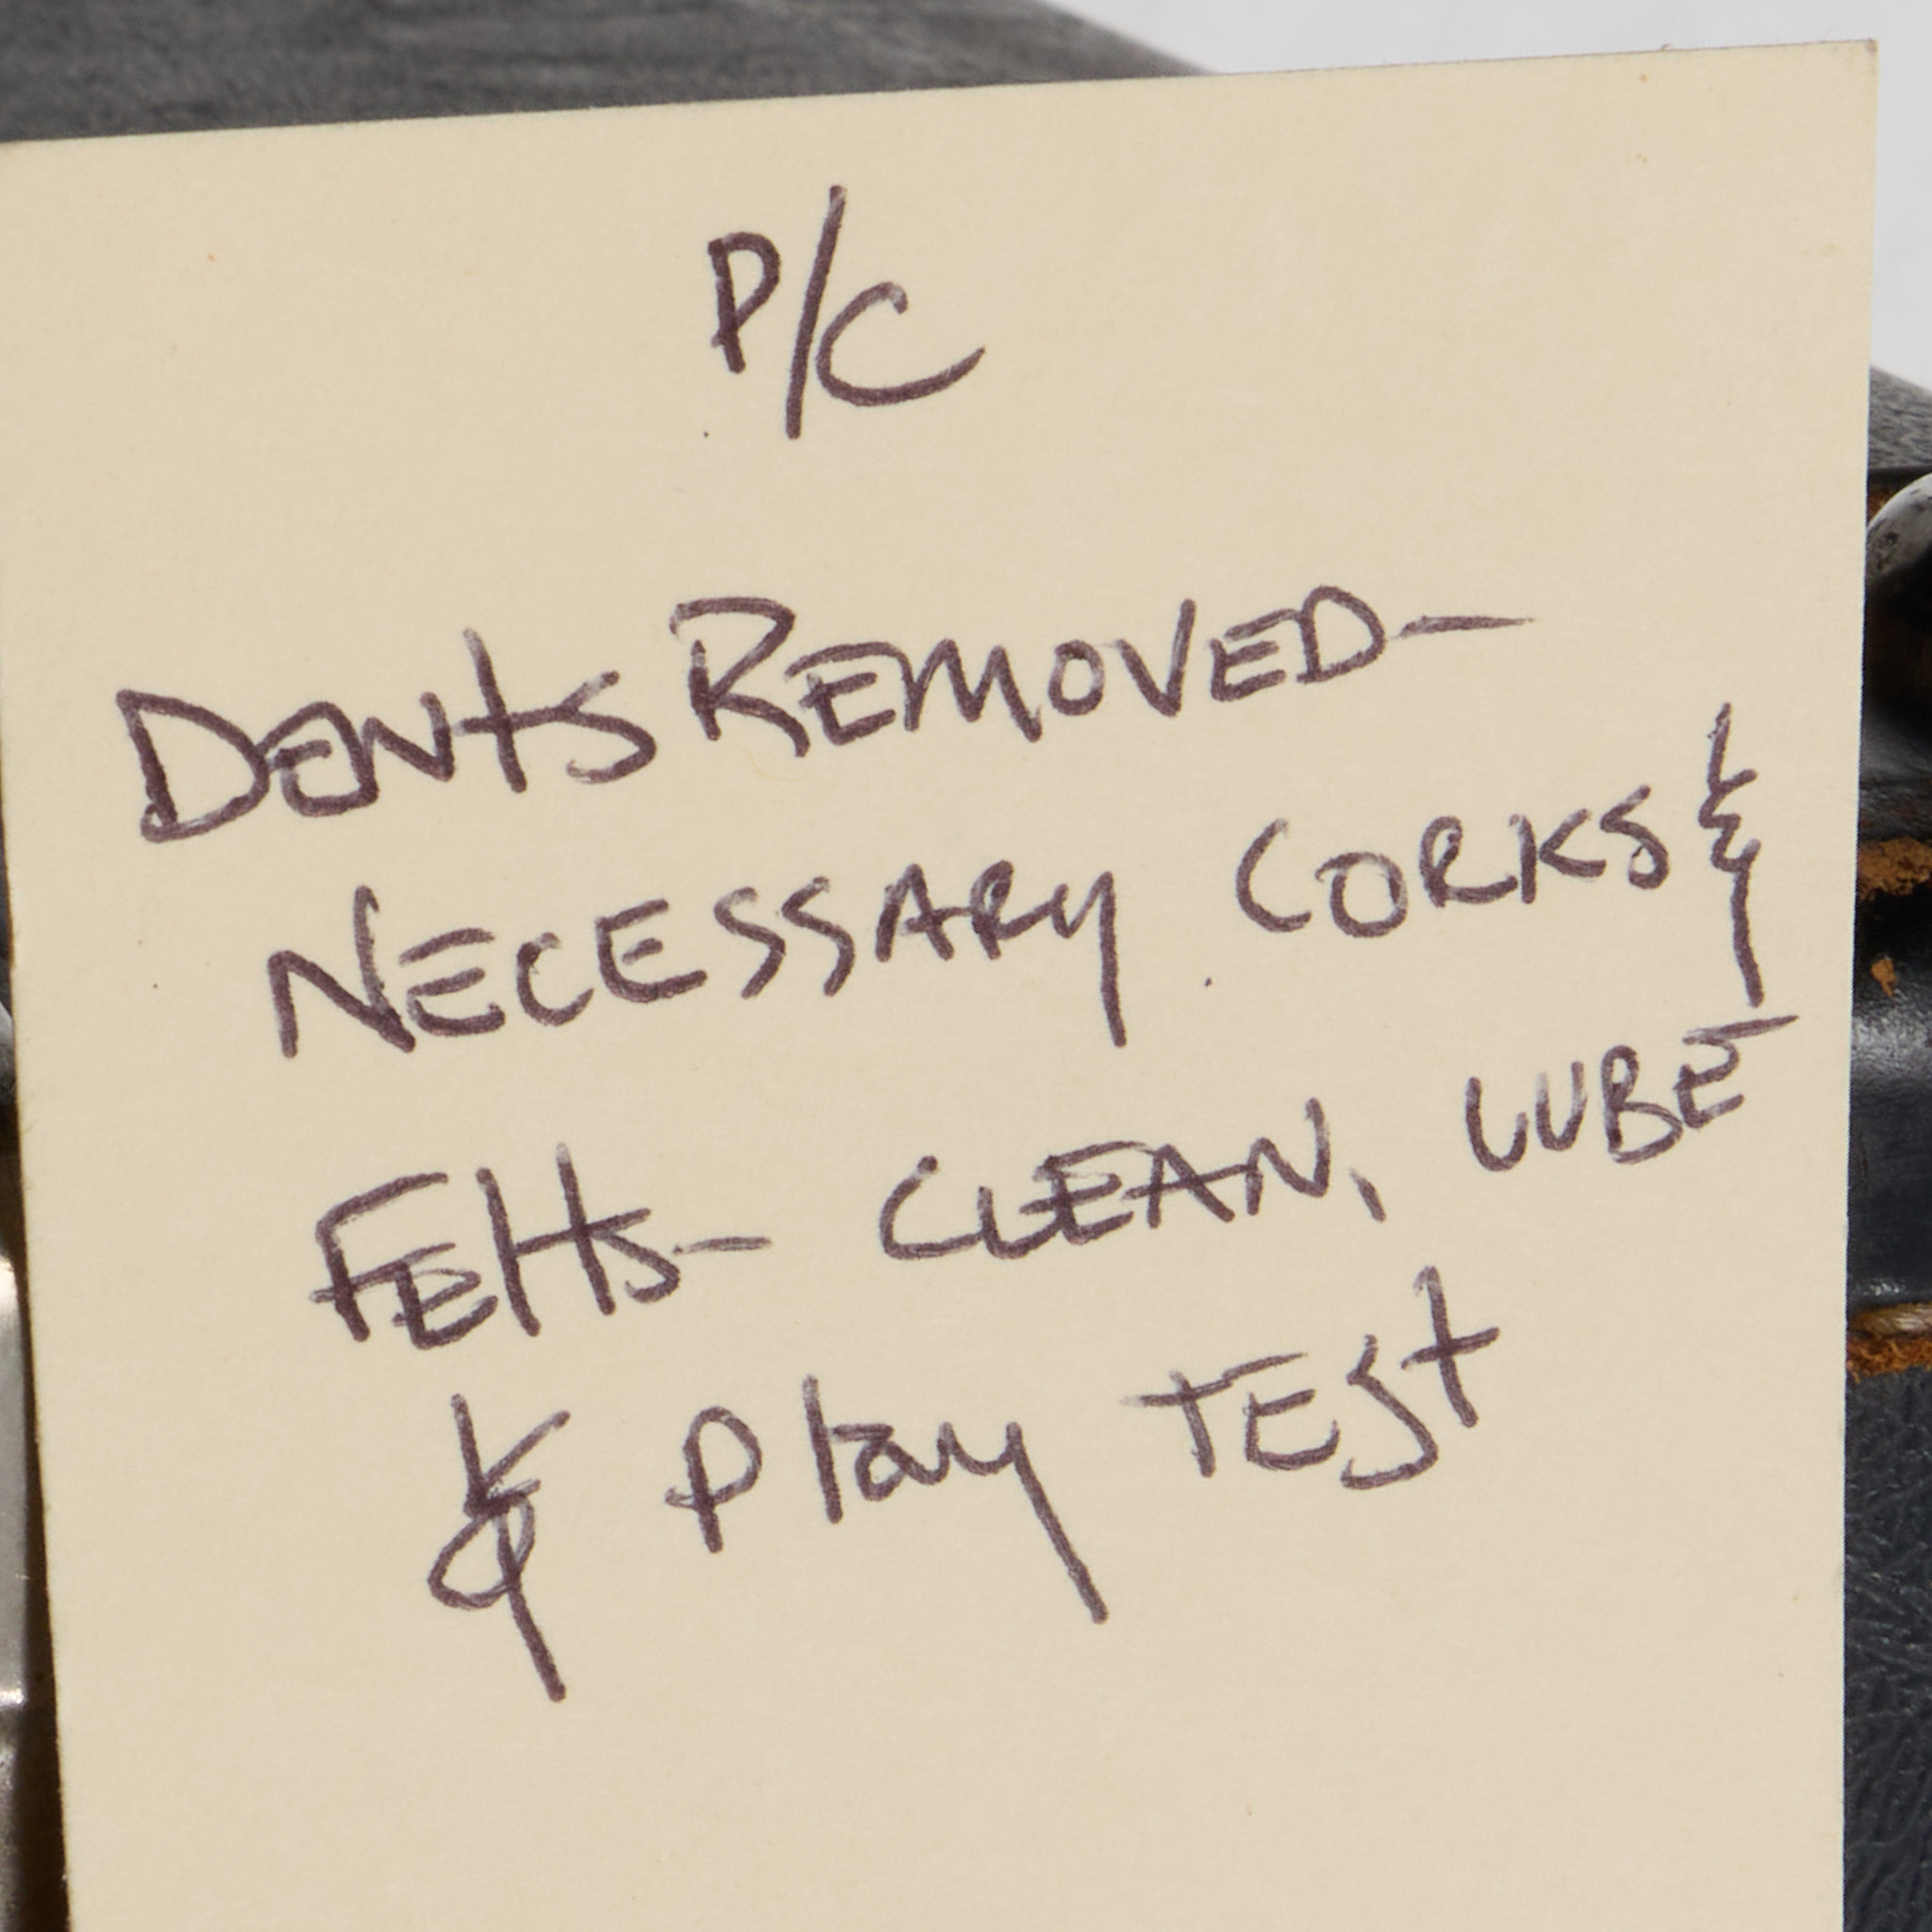 P/C
Dents REMOVED-
NECESSARY CORKS &
Felts- CLEAN, LUBE
& Play TEST